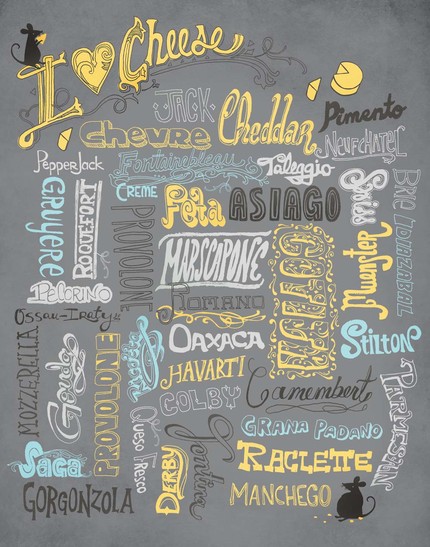 I Cheese
JACK
Cheddar
Pimento
Chevre
Neufchatel
PepperJack
Fontainebleau
Taleggio
Creme
Gruyere
ROQUEFORT
PROVOLONE
Feta
ASIAGO
Swiss
BRIE
IDIAZABAL
MARSCAPONE
Muenster
Pecorino
Romano
Ossau-Iraty
MOZZERELLA
Gouda
PROVOLONE
OAXACA
Stilton
HAVARTI
COLBY
Camembert
PARMESAN
Queso Fresco
Fontina
GRANA PADANO
Saga
DERBY
RACLETTE
GORGONZOLA
MANCHEGO